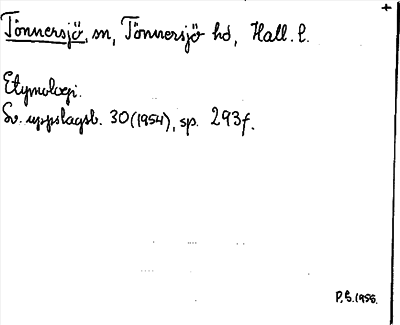 +
Tönnersjö, sn, Tönnersjö hd, Hall. l.
Etymologi.
Sv. uppslagsb. 30 (1954), sp. 293f.
P.E. 1958.